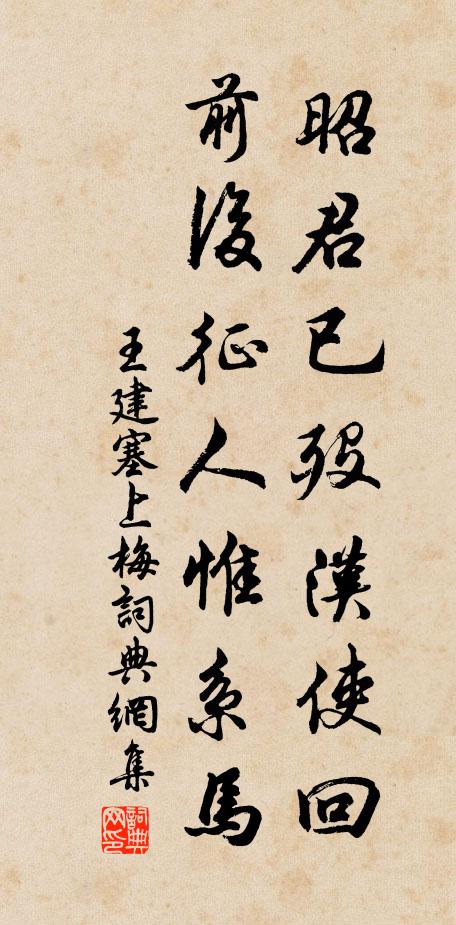 昭君已歿漢使回
前後征人惟系馬
王建塞上梅詞典網集
詞典網印